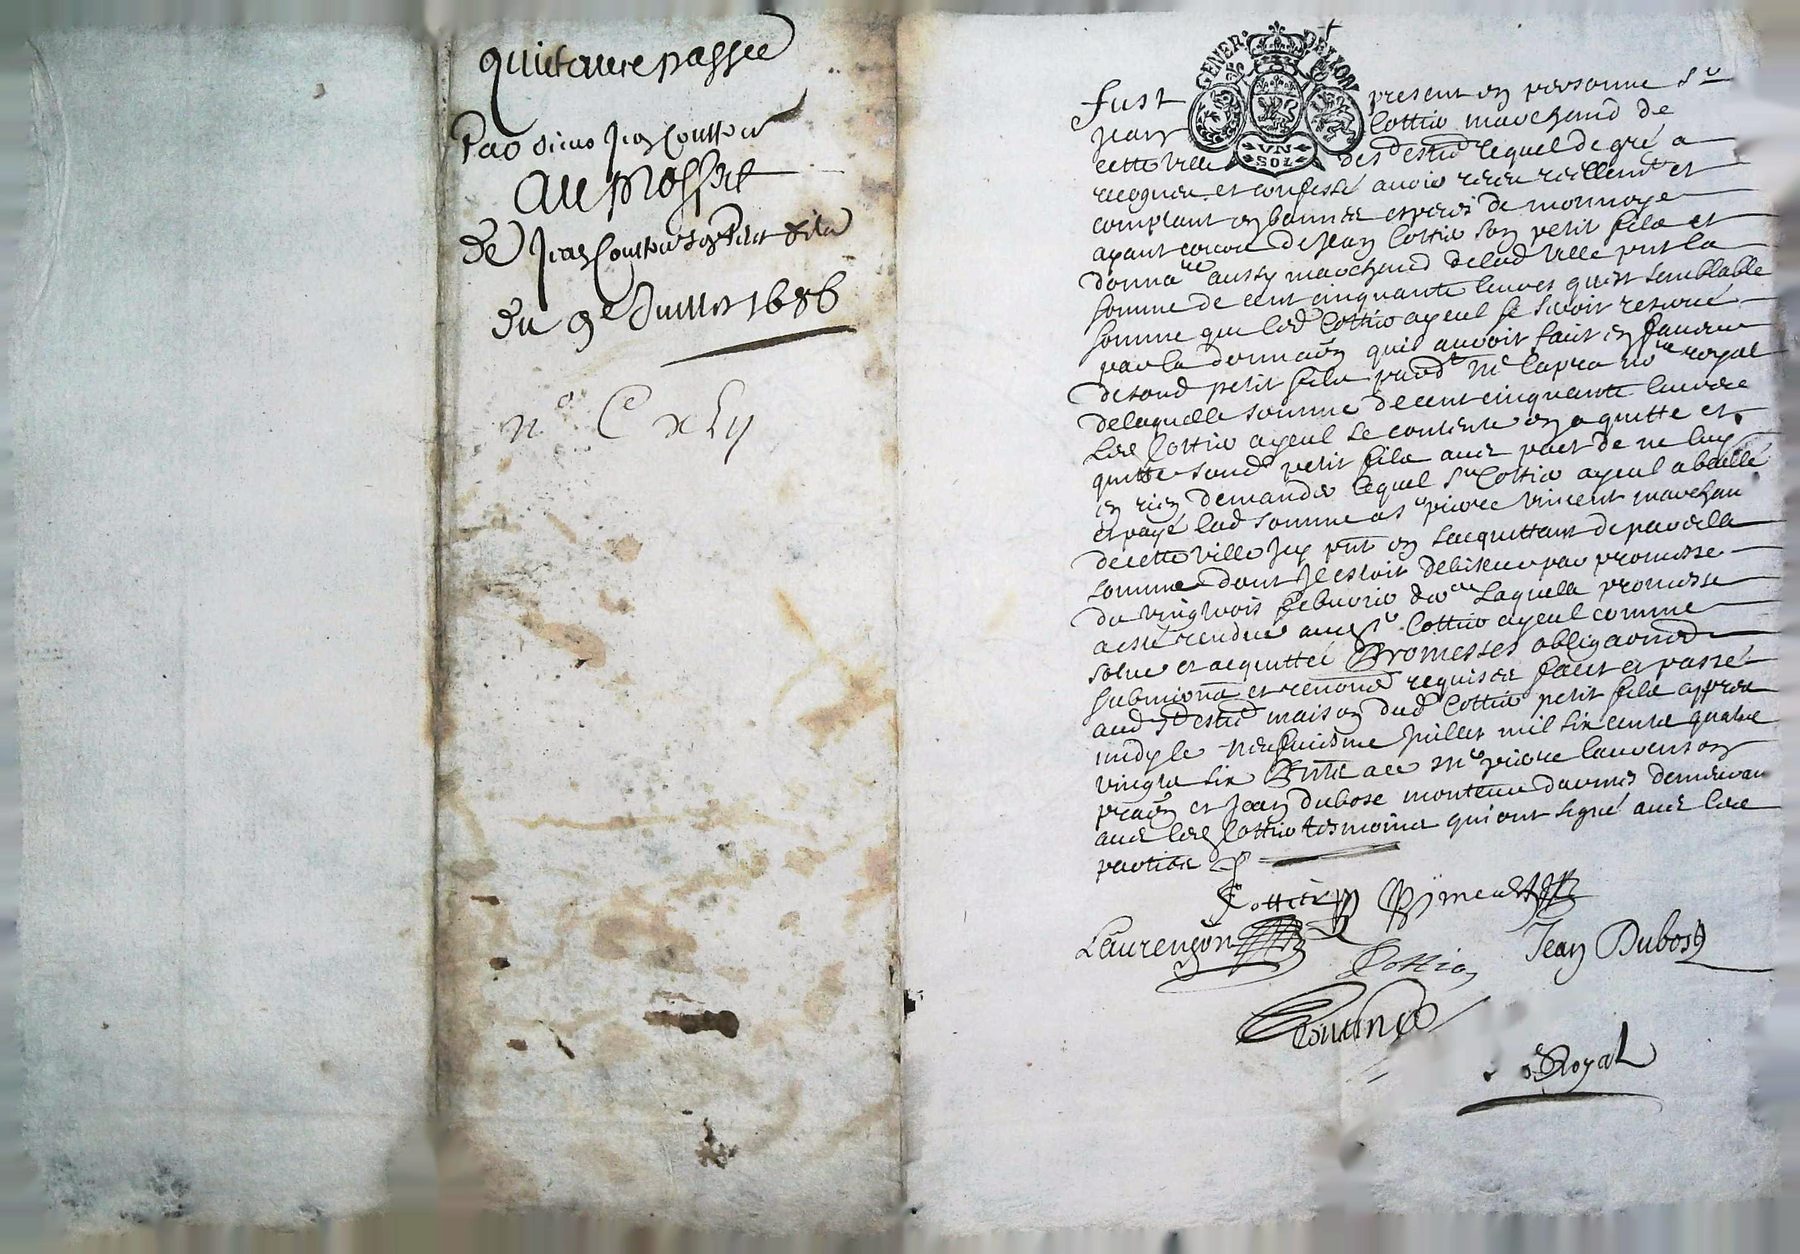 quittance passée
Par sieur Jean Cottier
au proffit
de Jean Cottier son petit fils
du 9e Juillet 1686
no C xLij
GENER. DE LYON
VN
SOL
fust present en personne Sr
Jean Cottier marchand de
cette ville de St Estne lequel de gré a
recogneu et confessé avoir receu reellemt et
comptant en bonnes especes de monnoye
ayant cours de Jean Cottier son petit fils et
donnare aussy marchand de lad ville pnt la
somme de cent cinquante livres quest semblable
somme que led Cottier ayeul se seroit reservé
par la donnaõn quil auroit fait en faveur
de sond petit fils pard Me Lapra nore royal
de laquelle somme de cent cinquante livres
led Cottier ayeul se contente en a quitté et
quitte sond petit fils avec pact de ne luy
en rien demander lequel Sr Cottier ayeul a baillé
et payé lad somme a Sr pierre Vincent marchan
de cette ville icy pnt en sacquittant de pareille
somme dont il estoit debiteur par promesse
du vingtrois febvrier dere laquelle promesse
a esté rendue aud Sr Cottier ayeul comme
solue et acquittée Promesses obligaõns
submiõns et renonõns requises fait et passé
aud St Estne maison dud Cottier petit fils appres
midy le neufuiesme juillet mil six cents quatre
vingts six Pnts a ce Me pierre Laurenson
praõn et Jean Dubose demeuran
avec led Cottier tesmoins qui ont signé avec les
parties
Cottier Vincent
Laurençon Cottier Jean Dubost
Royal